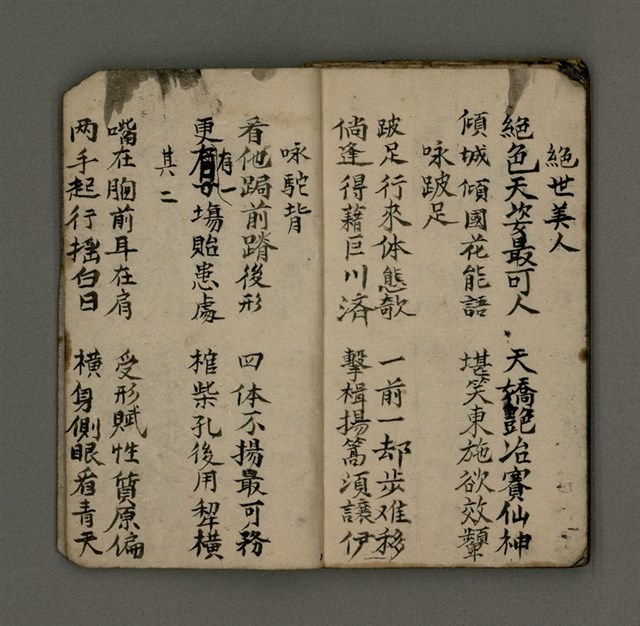 絕世美人
絕色天姿最可人　天嬌艷冶賽仙神
傾城傾國花能語　堪笑東施欲效顰
咏跛足
跛足行來体態欹　一前一却步难移
倘逢得藉巨川済　擊楫揚篙須讓伊
咏駝背
看他跼前蹐後形　四体不揚最可務
更有一塲貽患處　棺柴孔後用犂橫
其二
嘴在胸前耳在肩　受形賦性質原偏
两手起行揺白日　橫身側眼看青天